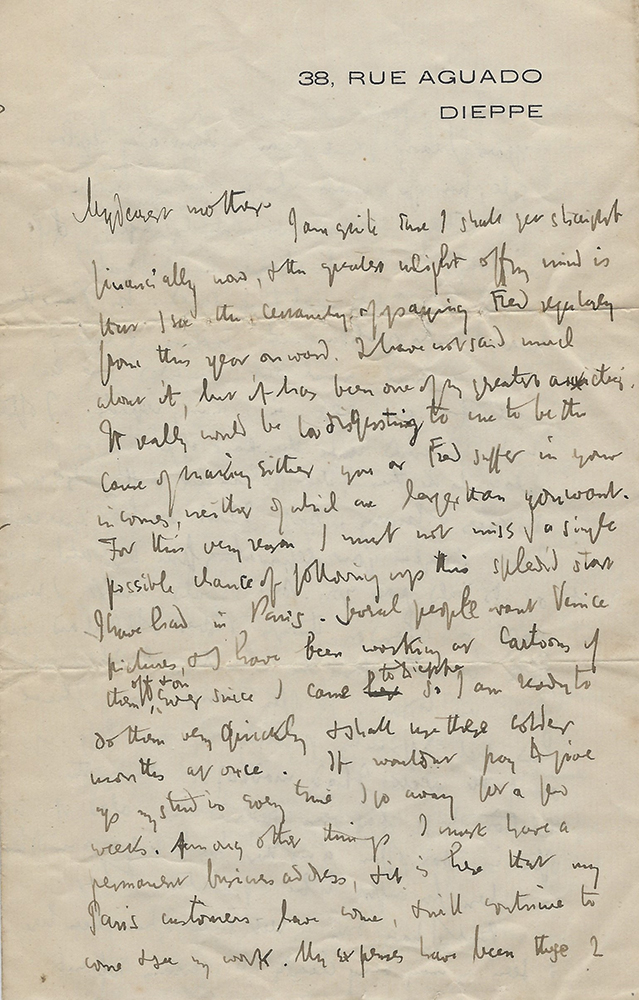 38, RUE AGUADO
DIEPPE
My dearest mother
I am quite sure I shall get straight
financially now, & the greatest weight off my mind is
that I see the certainty of paying Fred regularly
from this year onward. I have not said much
about it, but it has been one of my greatest anxieties.
It really would be too disgusting to me to be the
cause of making either you or Fred suffer in your
incomes, neither of which are larger than you want.
For this very reason I must not miss a single
possible chance of following up this splendid start
I have had in Paris. Several people want Venice
pictures, & I have been working at cartoons of
them off & on, ever since I came to Dieppe so I am ready to
do them very quickly & shall use these colder
months at once. It wouldn't pay to give
up my studio every time I go away for a few
weeks. Among other things I must have a
permanent business address, & it is here that my
Paris customers have come, & will continue to
come & see my work. My expenses have been these 2